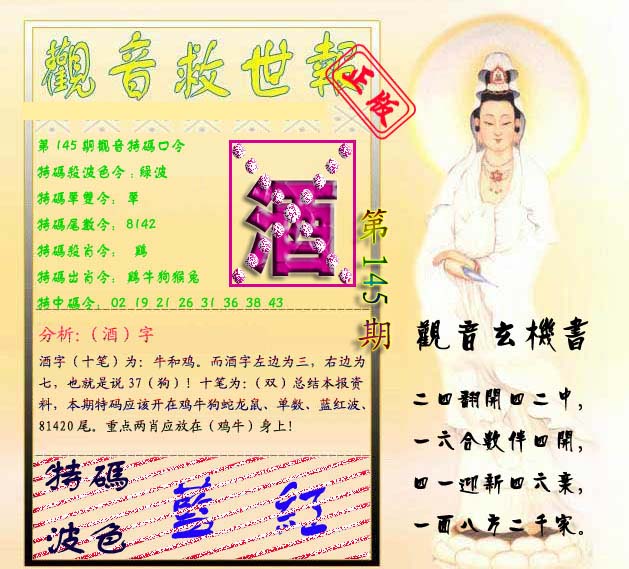 觀音救世報
正版
第145期觀音特碼口令
特碼殺波色令:綠波
特碼單雙令: 單
特碼尾數令: 8142
特碼殺肖令: 鷄
特碼出肖令: 鷄牛狗猴兔
特中碼令: 02 19 21 26 31 36 38 43
酒
第145期
分析:（酒）字
酒字（十笔）为：牛和鸡。而酒字左边为三，右边为
七，也就是说37（狗）！十笔为：（双）总结本报资
料，本期特码应该开在鸡牛狗蛇龙鼠、单数、蓝红波、
81420尾。重点两肖应放在（鸡牛）身上！
特碼
波色
藍 紅
觀音玄機書
二四翻開四二中，
一六合数伴四開，
四一迎新四六棄，
一面八方二千家。